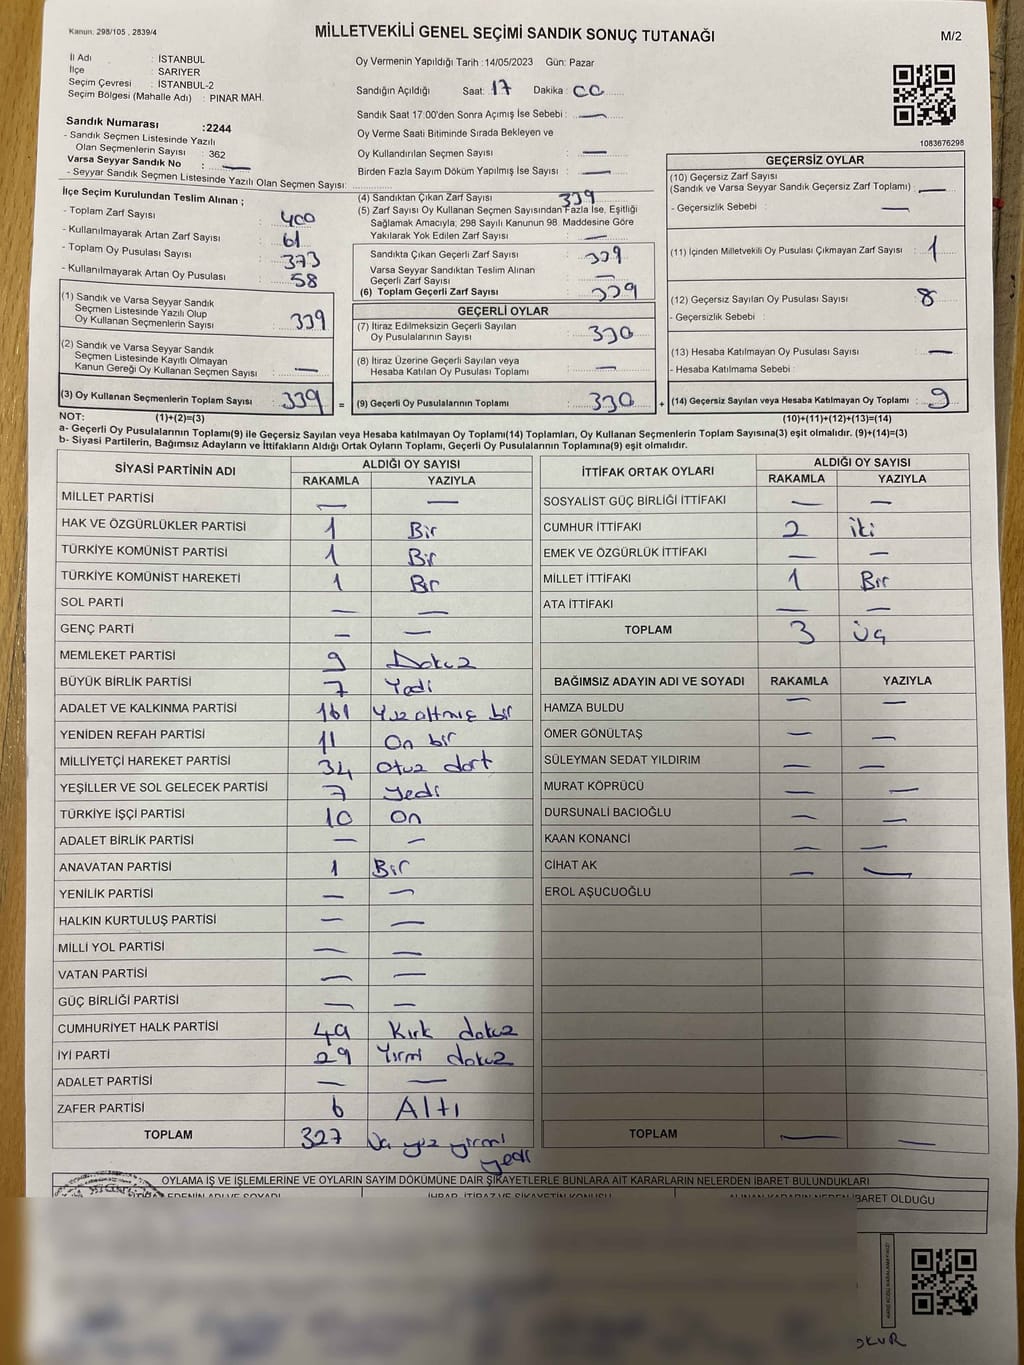 Kanun: 298/105 , 2839/4
MİLLETVEKİLİ GENEL SEÇİMİ SANDIK SONUÇ TUTANAĞI
M/2
İl Adı : İSTANBUL
İlçe : SARIYER
Seçim Çevresi : İSTANBUL-2
Seçim Bölgesi (Mahalle Adı) : PINAR MAH.
Oy Vermenin Yapıldığı Tarih :14/05/2023 Gün: Pazar
Sandığın Açıldığı Saat: 17 Dakika : 00
Sandık Saat 17:00'den Sonra Açımış İse Sebebi : —
Oy Verme Saati Bitiminde Sırada Bekleyen ve
Oy Kullandırılan Seçmen Sayısı : —
Birden Fazla Sayım Döküm Yapılmış İse Sayısı : —
1083676298
Sandık Numarası :2244
- Sandık Seçmen Listesinde Yazılı
Olan Seçmenlerin Sayısı : 362
Varsa Seyyar Sandık No : —
- Seyyar Sandık Seçmen Listesinde Yazılı Olan Seçmen Sayısı:
İlçe Seçim Kurulundan Teslim Alınan ;
- Toplam Zarf Sayısı : 400
- Kullanılmayarak Artan Zarf Sayısı : 61
- Toplam Oy Pusulası Sayısı : 373
- Kullanılmayarak Artan Oy Pusulası : 58
(1) Sandık ve Varsa Seyyar Sandık
Seçmen Listesinde Yazılı Olup
Oy Kullanan Seçmenlerin Sayısı : 339
(2) Sandık ve Varsa Seyyar Sandık
Seçmen Listesinde Kayıtlı Olmayan
Kanun Gereği Oy Kullanan Seçmen Sayısı : —
(3) Oy Kullanan Seçmenlerin Toplam Sayısı : 339
(4) Sandıktan Çıkan Zarf Sayısı : 339
(5) Zarf Sayısı Oy Kullanan Seçmen Sayısından Fazla İse, Eşitliği
Sağlamak Amacıyla, 298 Sayılı Kanunun 98. Maddesine Göre
Yakılarak Yok Edilen Zarf Sayısı : —
Sandıkta Çıkan Geçerli Zarf Sayısı : 339
Varsa Seyyar Sandıktan Teslim Alınan
Geçerli Zarf Sayısı : —
(6) Toplam Geçerli Zarf Sayısı : 339
GEÇERLİ OYLAR
(7) İtiraz Edilmeksizin Geçerli Sayılan
Oy Pusulalarının Sayısı : 330
(8) İtiraz Üzerine Geçerli Sayılan veya
Hesaba Katılan Oy Pusulası Toplamı : —
= (9) Geçerli Oy Pusulalarının Toplamı : 330
GEÇERSİZ OYLAR
(10) Geçersiz Zarf Sayısı
(Sandık ve Varsa Seyyar Sandık Geçersiz Zarf Toplamı) : —
- Geçersizlik Sebebi : —
(11) İçinden Milletvekili Oy Pusulası Çıkmayan Zarf Sayısı : 1
(12) Geçersiz Sayılan Oy Pusulası Sayısı : 8
- Geçersizlik Sebebi :
(13) Hesaba Katılmayan Oy Pusulası Sayısı : —
- Hesaba Katılmama Sebebi :
+ (14) Geçersiz Sayılan veya Hesaba Katılmayan Oy Toplamı : 9
NOT: (1)+(2)=(3)
(10)+(11)+(12)+(13)=(14)
a- Geçerli Oy Pusulalarının Toplamı(9) ile Geçersiz Sayılan veya Hesaba katılmayan Oy Toplamı(14) Toplamları, Oy Kullanan Seçmenlerin Toplam Sayısına(3) eşit olmalıdır. (9)+(14)=(3)
b- Siyasi Partilerin, Bağımsız Adayların ve İttifakların Aldığı Ortak Oyların Toplamı, Geçerli Oy Pusulalarının Toplamına(9) eşit olmalıdır.
SİYASİ PARTİNİN ADI ALDIĞI OY SAYISI
RAKAMLA YAZIYLA
MİLLET PARTİSİ — —
HAK VE ÖZGÜRLÜKLER PARTİSİ 1 Bir
TÜRKİYE KOMÜNİST PARTİSİ 1 Bir
TÜRKİYE KOMÜNİST HAREKETİ 1 Bir
SOL PARTİ — —
GENÇ PARTİ — —
MEMLEKET PARTİSİ 9 Dokuz
BÜYÜK BİRLİK PARTİSİ 7 Yedi
ADALET VE KALKINMA PARTİSİ 161 Yüz altmış bir
YENİDEN REFAH PARTİSİ 11 On bir
MİLLİYETÇİ HAREKET PARTİSİ 34 otuz dört
YEŞİLLER VE SOL GELECEK PARTİSİ 7 yedi
TÜRKİYE İŞÇİ PARTİSİ 10 On
ADALET BİRLİK PARTİSİ — —
ANAVATAN PARTİSİ 1 Bir
YENİLİK PARTİSİ — —
HALKIN KURTULUŞ PARTİSİ — —
MİLLİ YOL PARTİSİ — —
VATAN PARTİSİ — —
GÜÇ BİRLİĞİ PARTİSİ — —
CUMHURİYET HALK PARTİSİ 49 Kırk dokuz
İYİ PARTİ 29 Yirmi dokuz
ADALET PARTİSİ — —
ZAFER PARTİSİ 6 Altı
TOPLAM 327 Üç yüz yirmi
yedi
İTTİFAK ORTAK OYLARI ALDIĞI OY SAYISI
RAKAMLA YAZIYLA
SOSYALİST GÜÇ BİRLİĞİ İTTİFAKI — —
CUMHUR İTTİFAKI 2 iki
EMEK VE ÖZGÜRLÜK İTTİFAKI — —
MİLLET İTTİFAKI 1 Bir
ATA İTTİFAKI — —
TOPLAM 3 üç
BAĞIMSIZ ADAYIN ADI VE SOYADI RAKAMLA YAZIYLA
HAMZA BULDU — —
ÖMER GÖNÜLTAŞ — —
SÜLEYMAN SEDAT YILDIRIM — —
MURAT KÖPRÜCÜ — —
DURSUNALİ BACIOĞLU — —
KAAN KONANCİ — —
CİHAT AK — —
EROL AŞUCUOĞLU
TOPLAM — —
OYLAMA İŞ VE İŞLEMLERİNE VE OYLARIN SAYIM DÖKÜMÜNE DAİR ŞİKAYETLERLE BUNLARA AİT KARARLARIN NELERDEN İBARET BULUNDUKLARI